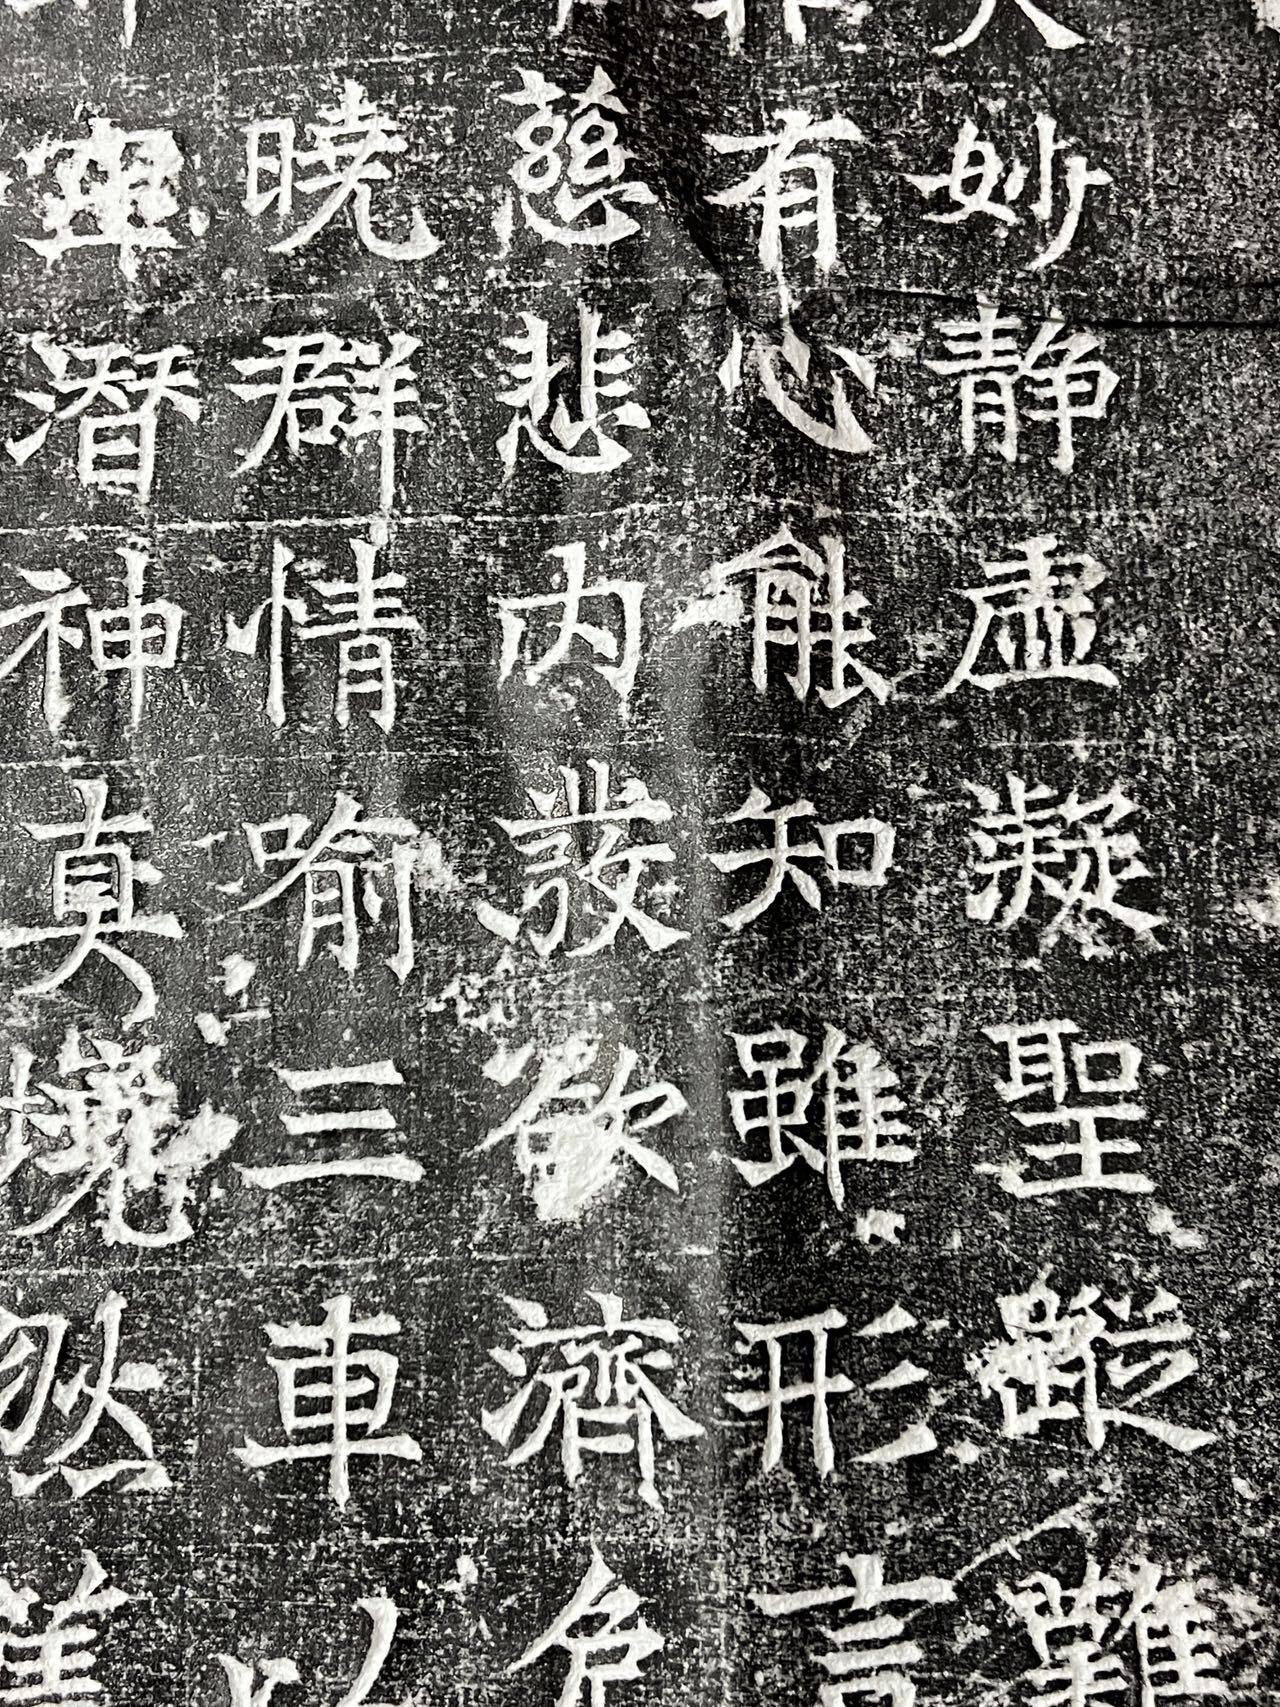 妙靜虛凝聖蹤難
有心能知雖形言
慈悲內發欲濟危
曉群情喻三車以
畢潛神真境然